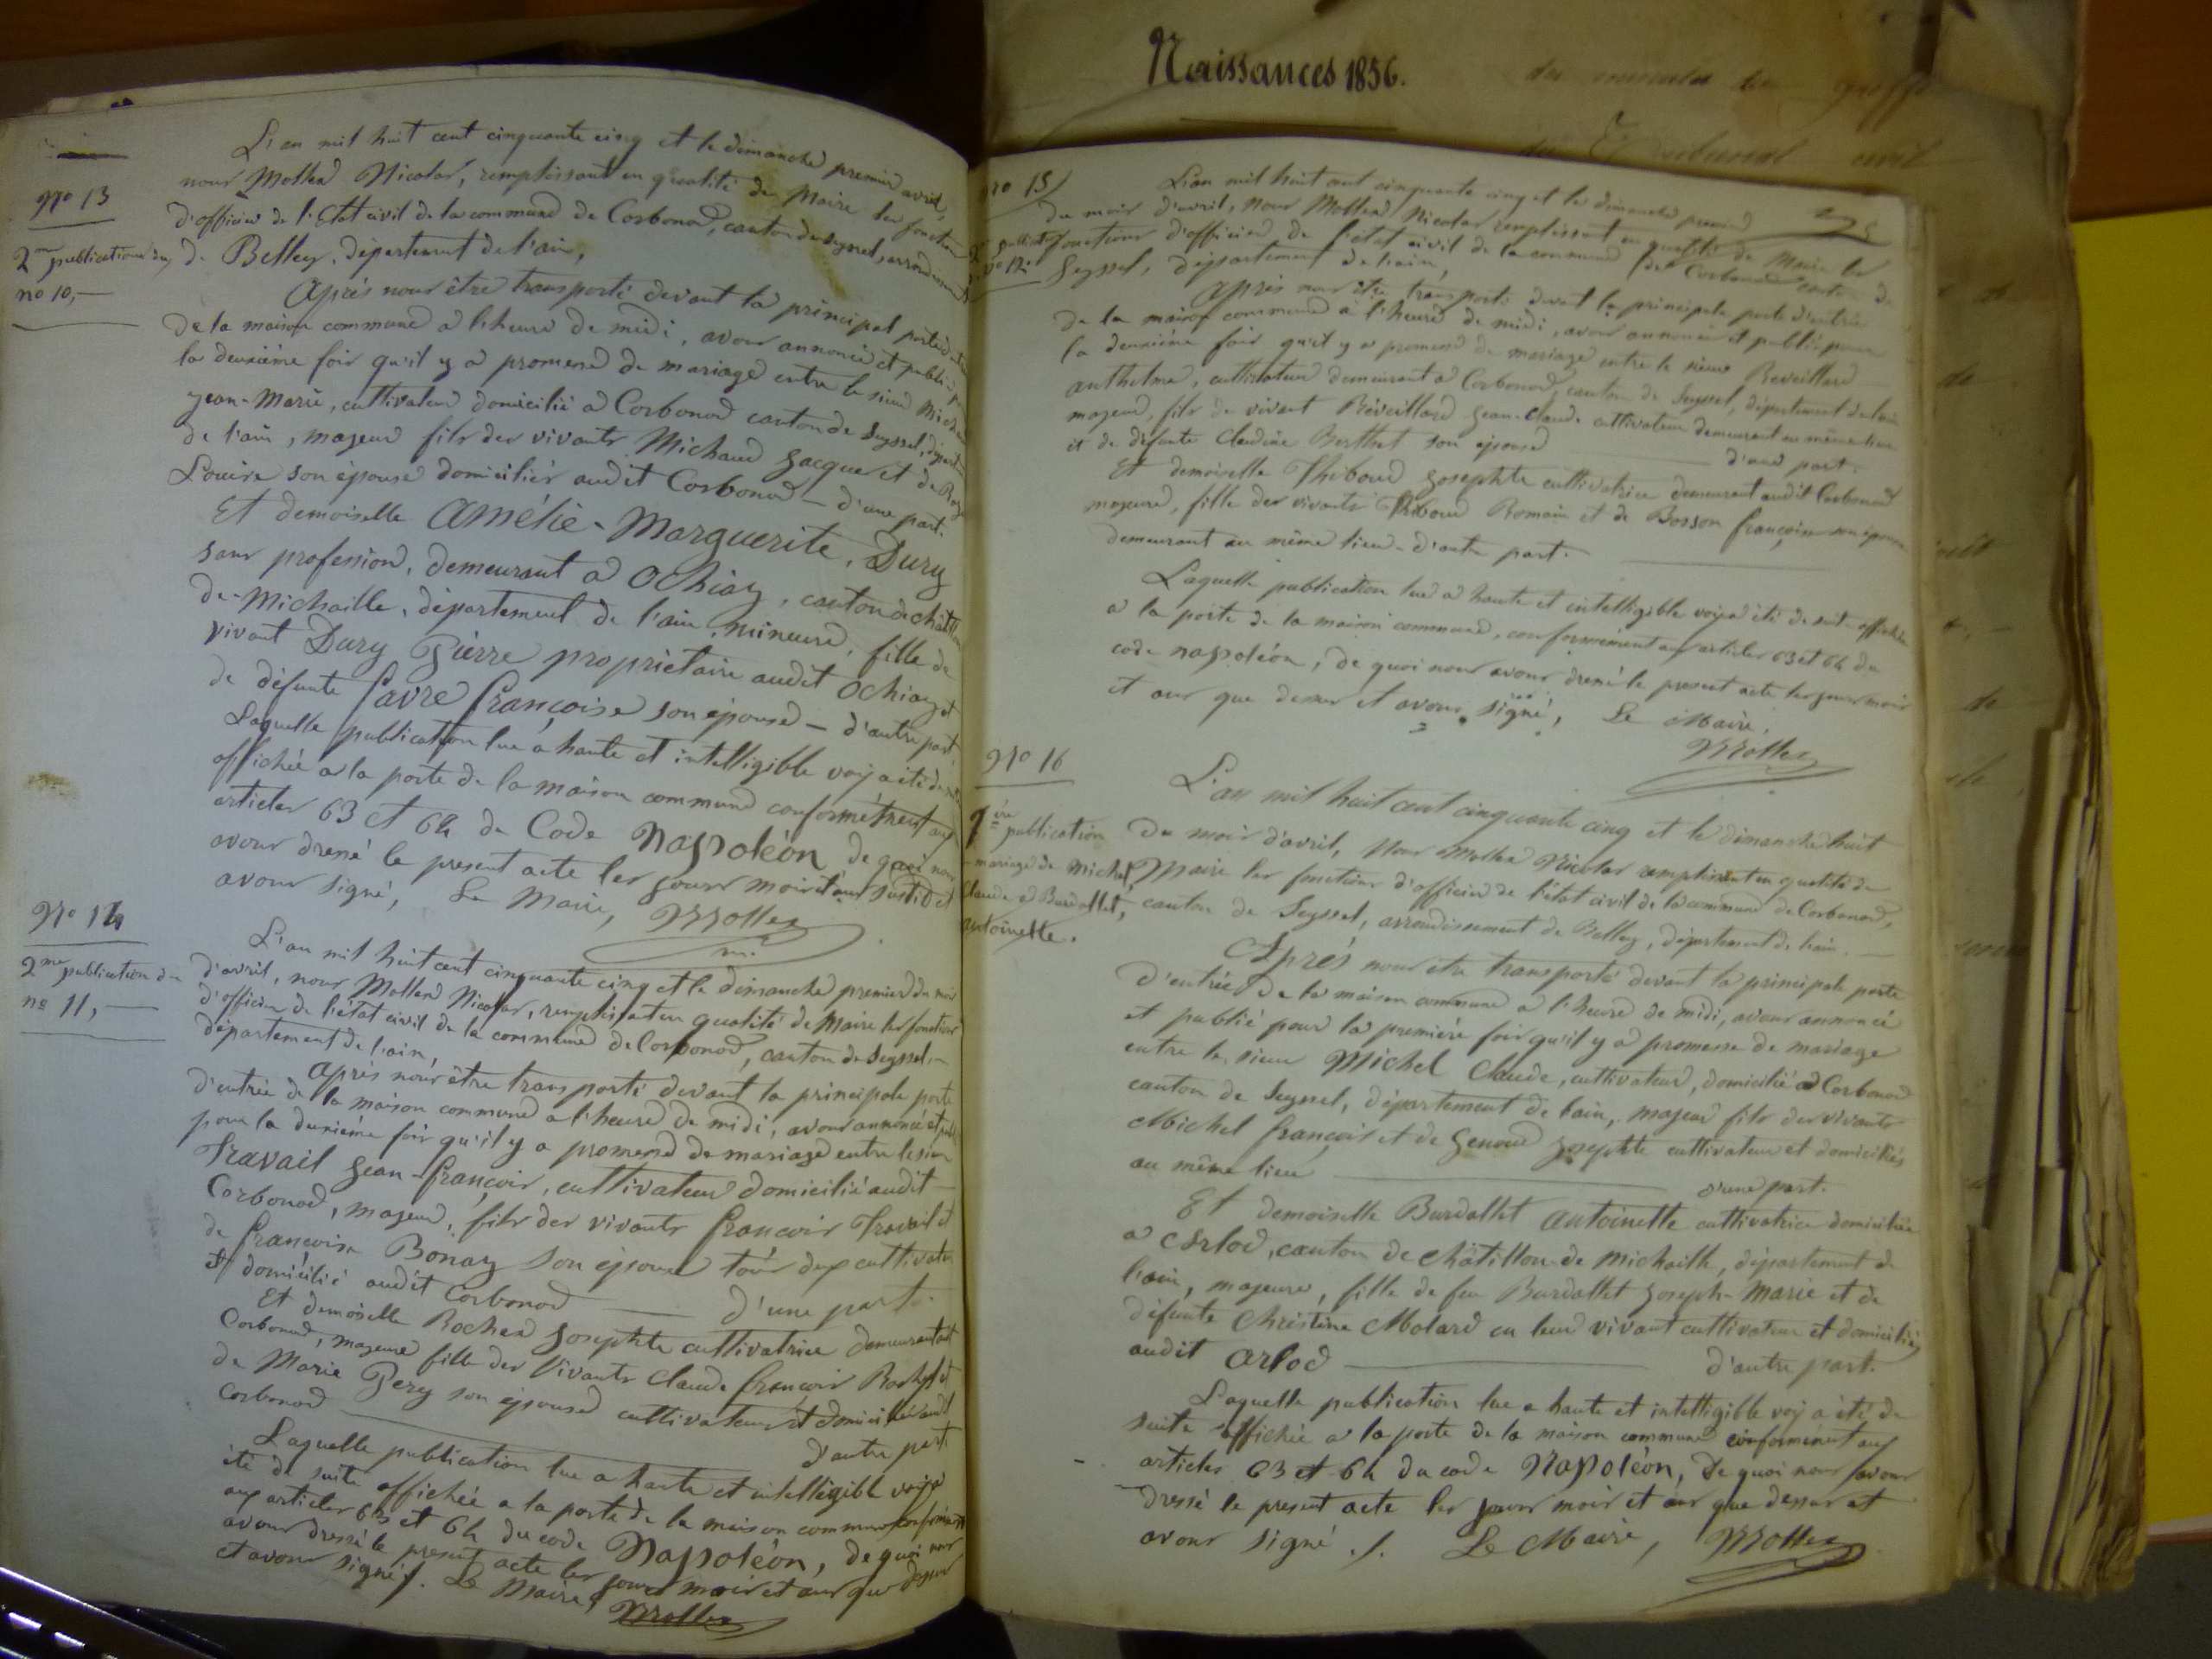 Naissances 1856.
du
greffe
Tribunal civil
No 13
2me publication du
no 10,—
L'an mil huit cent cinquante cinq et le dimanche premier avril,
nous Mollex Nicolas, remplissant en qualité de Maire les fonctions
d'officier de l'Etat civil de la commune de Corbonod, canton de Seyssel, arrondissement
de Belley, département de l'ain,
Après nous être transporté devant la principal porte d'entrée
de la maison commune a l'heure de midi, avons annoncé et publié pour
la deuxième fois qu'il y a promesse de mariage entre le sieur Michaud
Jean-Marie, cultivateur domicilié a Corbonod canton de Seyssel, départ
de l'ain, majeur fils des vivants Michaud Jacque et de
Louise son épouse domiciliés audit Corbonod — d'une part.
Et demoiselle Amélie-Marguerite, Dury
sans profession, demeurant a Ochiaz, canton de châtillon
de-Michaille, département de l'ain, mineure, fille de
vivant Dury Pierre propriétaire audit Ochiaz et
de défunte favre françoise son épouse — d'autre part
Laquelle publication lue a haute et intelligible voix a été de suite
affichée a la porte de la maison commune conformément aux
articles 63 et 64 du Code Napoléon de quoi nous
avons dressé le present acte les jours mois et an susdit et
avons signé, Le Maire, Mollex
No 14
2me publication du
no 11,—
L'an mil huit cent cinquante cinq et le dimanche premier du mois
d'avril, nous Mollex Nicolas, remplissant en qualité de Maire les fonctions
d'officier de l'état civil de la commune de Corbonod, canton de Seyssel,—
département de l'ain,
Après nous être transporté devant la principale porte
d'entrée de la maison commune a l'heure de midi, avons annoncé et publié
pour la deuxième fois qu'il y a promesse de mariage entre le sieur
Travail Jean-françois, cultivateur domicilié audit
Corbonod, majeur, fils des vivants françois Travail et
de françoise Bonaz son épouse tous deux cultivateurs
et domicilié audit Corbonod — d'une part.
Et demoiselle Rochez Josephte cultivatrice demeurant audit
Corbonod, majeure fille des vivants Claude françois Rochez et
de Marie Pery son épouse cultivateurs et domiciliés audit
Corbonod — d'autre part.
Laquelle publication lue a haute et intelligible voix a
été de suite affichée a la porte de la maison commune conformément
aux articles 63 et 64 du code Napoléon, de quoi nous
avons dressé le present acte les jours mois et an que dessus
et avons signé /. Le Maire, Mollex
no 15
2me publicat
du no 12.
L'an mil huit cent cinquante cinq et le dimanche premier
du mois d'avril, nous Mollex Nicolas remplissant en qualité de Maire les
fonctions d'officier de l'état civil de la commune de Corbonod canton de
Seyssel, département de l'ain,
Après nous être transporté devant la principale porte d'entrée
de la maison commune à l'heure de midi, avons annoncé et publié pour
la deuxième fois qu'il y a promesse de mariage entre le sieur Reveillard
anthelme, cultivateur demeurant a Corbonod, canton de Seyssel, département de l'ain
majeur, fils de vivant Réveillard Jean-Claude cultivateur demeurant au même lieu
et de défunte Claudine Berthet son épouse — d'une part.
Et demoiselle Thiboud Josephte cultivatrice demeurant audit Corbonod
majeure, fille des vivants Thiboud Romain et de Bosson françoise son épouse
demeurant au même lieu — d'autre part.
Laquelle publication lue a haute et intelligible voix a été de suite affichée
a la porte de la maison commune, conformément aux articles 63 et 64 du
code napoléon, de quoi nous avons dressé le present acte les jours mois
et an que dessus et avons signé, Le Maire,
Mollex
No 16
1ère publication
mariage de Michel
Claude à Burdallet,
antoinette.
L'an mil huit cent cinquante cinq et le dimanche huit
du mois d'avril, Nous Mollex Nicolas remplissant en qualité de
Maire les fonctions d'officier de l'état civil de la commune de Corbonod,
canton de Seyssel, arrondissement de Belley, département de l'ain —
Après nous être transporté devant la principale porte
d'entrée de la maison commune a l'heure de midi, avons annoncé
et publié pour la première fois qu'il y a promesse de mariage
entre le sieur Michel Claude, cultivateur, domicilié a Corbonod
canton de Seyssel, département de l'ain, majeur fils des vivants
Michel françois et de Genoud Josephte cultivateurs et domiciliés
au même lieu — d'une part.
Et demoiselle Burdallet antoinette cultivatrice domiciliée
a Arlod, canton de Châtillon-de Michaille, département de
l'ain, majeure, fille de feu Burdallet Joseph-Marie et de
défunte Christine Molard en leur vivant cultivateurs et domiciliés
audit Arlod — d'autre part.
Laquelle publication lue a haute et intelligible voix a été de
suite affichée a la porte de la maison commune conformément aux
articles 63 et 64 du code Napoléon, de quoi nous avons
dressé le present acte les jours mois et an que dessus et
avons signé ./. Le Maire, Mollex